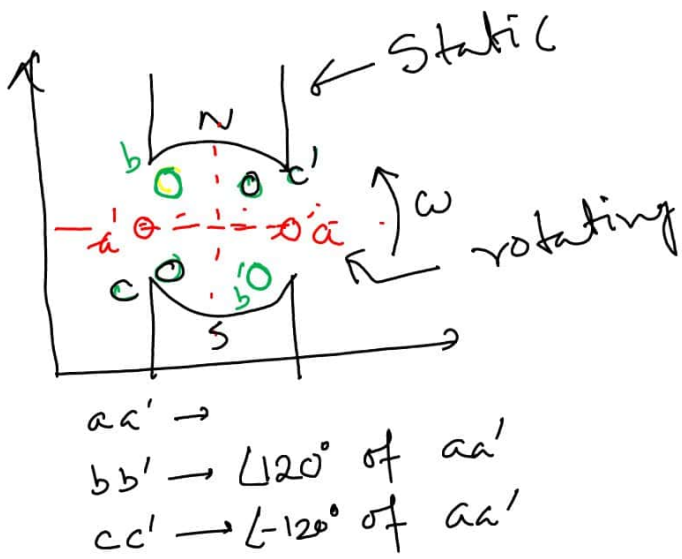 Static
N
b c'
ω
a' a
rotating
c b'
S
aa' →
bb' → ∠120° of aa'
cc' → ∠-120° of aa'